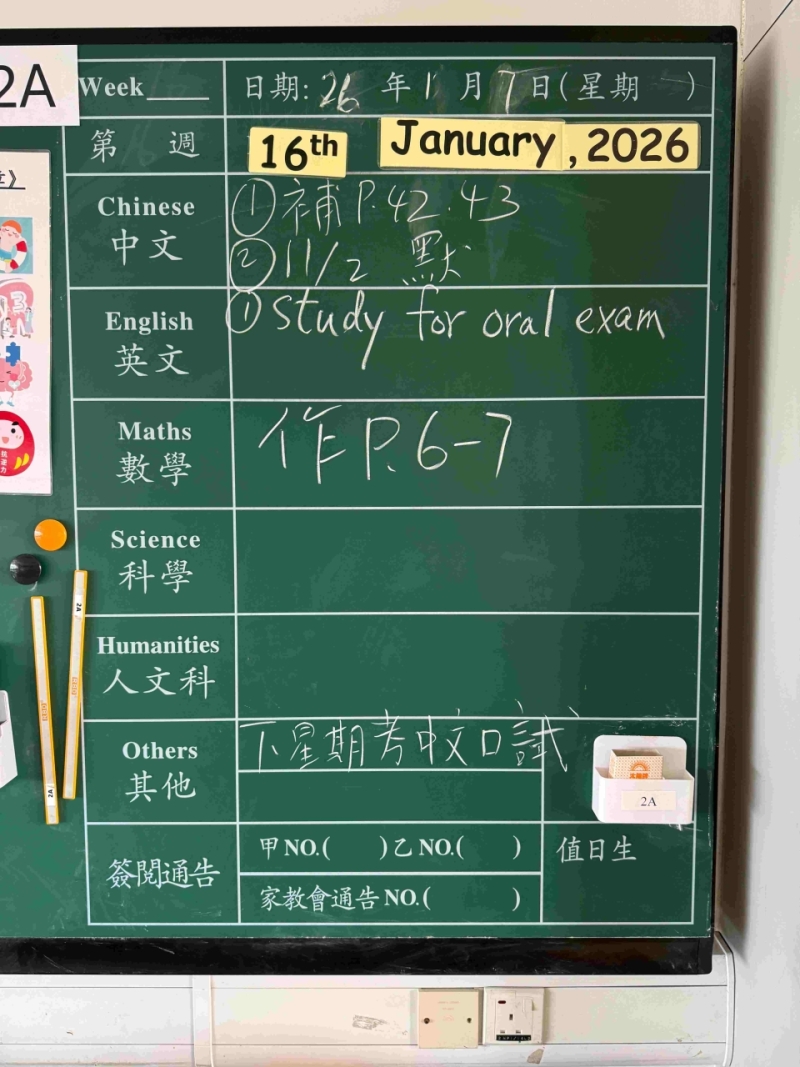 2A
Week____ 日期: 26 年 1 月 7 日(星期 )
第 週 16th January, 2026
Chinese
中文
① 補 P.42.43
② 11/2 默
English
英文
① study for oral exam
Maths
數學
作 P. 6-7
Science
科學
Humanities
人文科
Others
其他
下星期考中文口試
2A
簽閱通告
甲 NO.( )乙 NO.( )
家教會通告 NO.( )
值日生
2A
2A